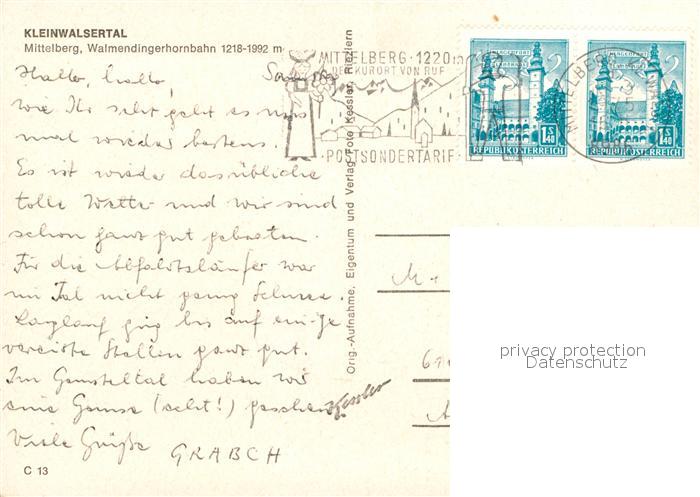 KLEINWALSERTAL
Mittelberg, Walmendingerhornbahn 1218-1992 m
Hallo, hallo!
wie Ihr seht geht es uns
mal wieder bestens.
Es ist wieder das übliche
tolle Wetter und wir sind
schon ganz gut gebraten.
Für die Abfahrtsläufer war
im Tal nicht genug Schnee.
Langlauf ging bis auf einige
vereiste Stellen ganz gut.
Im Gemsteltal haben wir
eine Gemse (echt!) gesehen
Viele Grüße
GRABCH
C 13
Orig.-Aufnahme, Eigentum und Verlag Foto Kessler, Riezlern
Kessler
MITTELBERG · 1220 m
KURORT VON RUF
POSTSONDERTARIF
MITTELBERG
2
1S40
REPUBLIK ÖSTERREICH
2
1S40
REPUBLIK ÖSTERREICH
M
privacy protection
Datenschutz